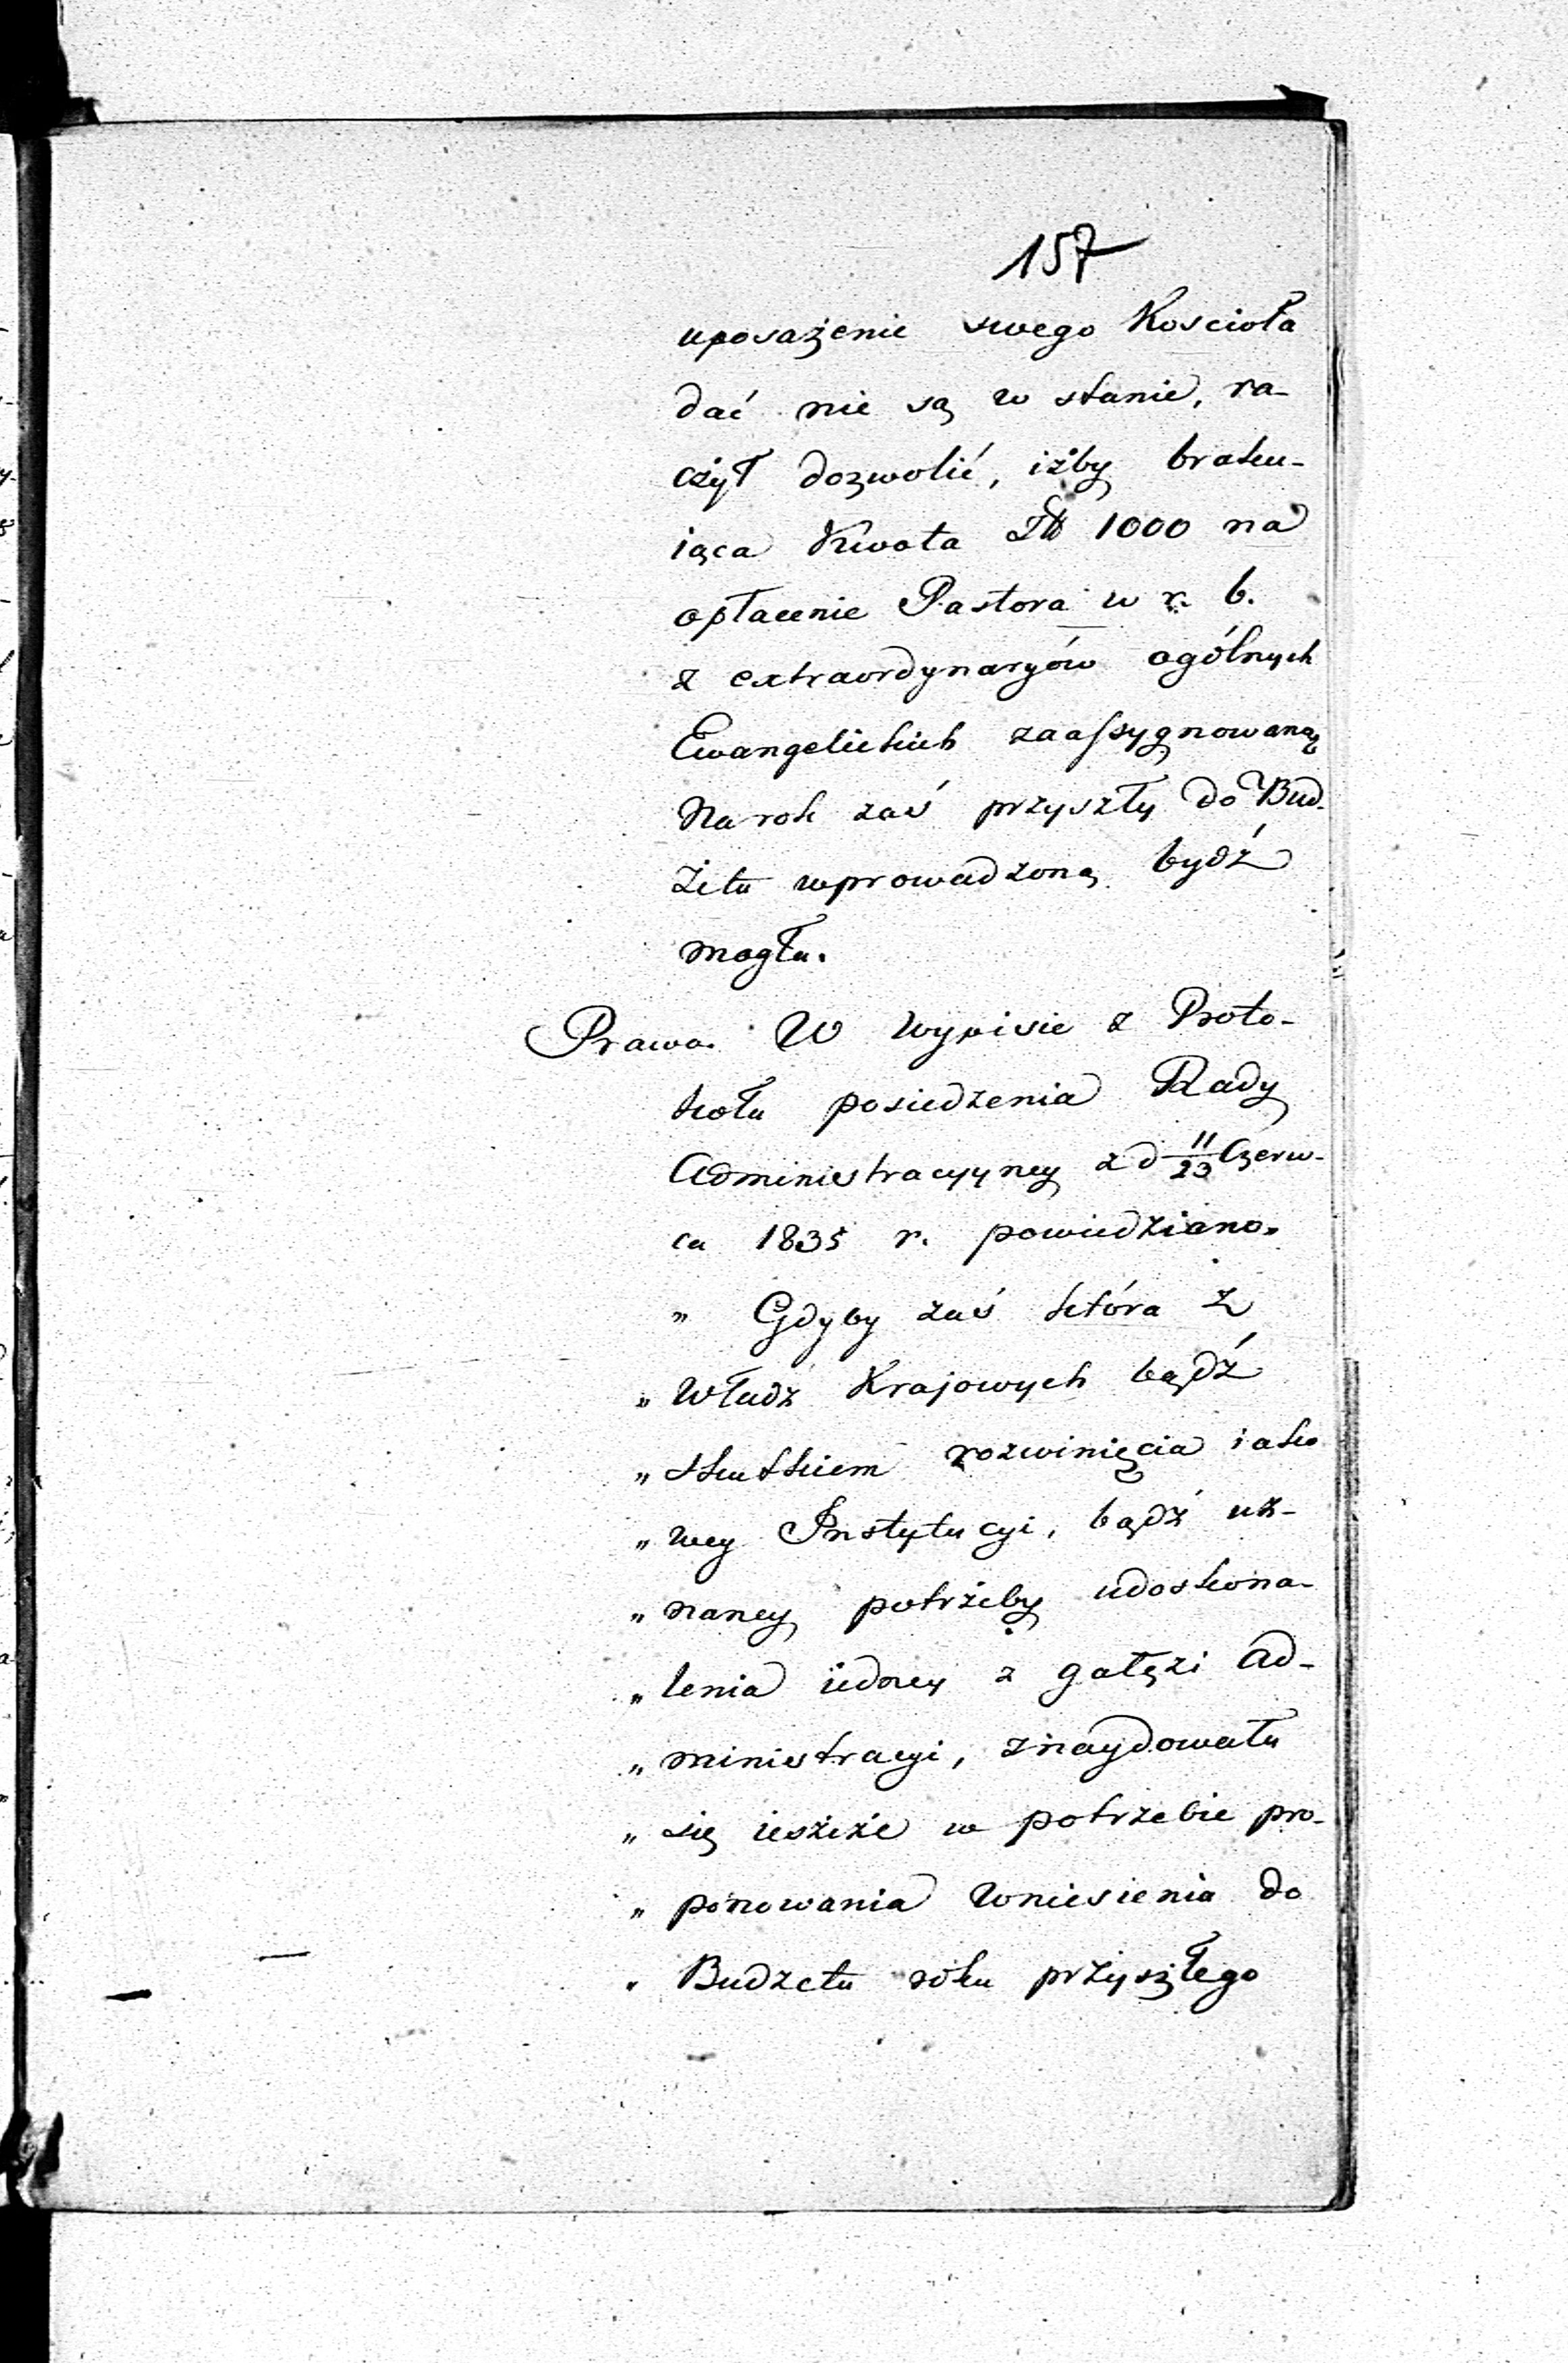 157
uposażenie swego Kościoła
dać nie są w stanie, ra-
czył dozwolić, iżby braku-
iąca Kwota Złł 1000 na
opłacenie Pastora w r. b.
z extraordynaryów ogólnych
Ewangelickich zaassygnowaną
Na rok zaś przyszły do Bud-
żetu wprowadzoną bydź
mogła.
Prawo. W wypisie z Proto-
kołu posiedzenia Rady
Administracyyney z d 11/23 Czerw-
ca 1835 r. powiedziano.
„ Gdyby zaś która z
„ Władz Krajowych bądź
„ skutkiem rozwinięcia iako
„ wey Instytucyi, bądź uz-
„ naney potrzeby udoskona-
„ lenia iedney z gałęzi Ad-
„ ministracyi, znaydowała
„ się ieszcze w potrzebie pro-
„ ponowania wniesienia do
„ Budżetu roku przyszłego